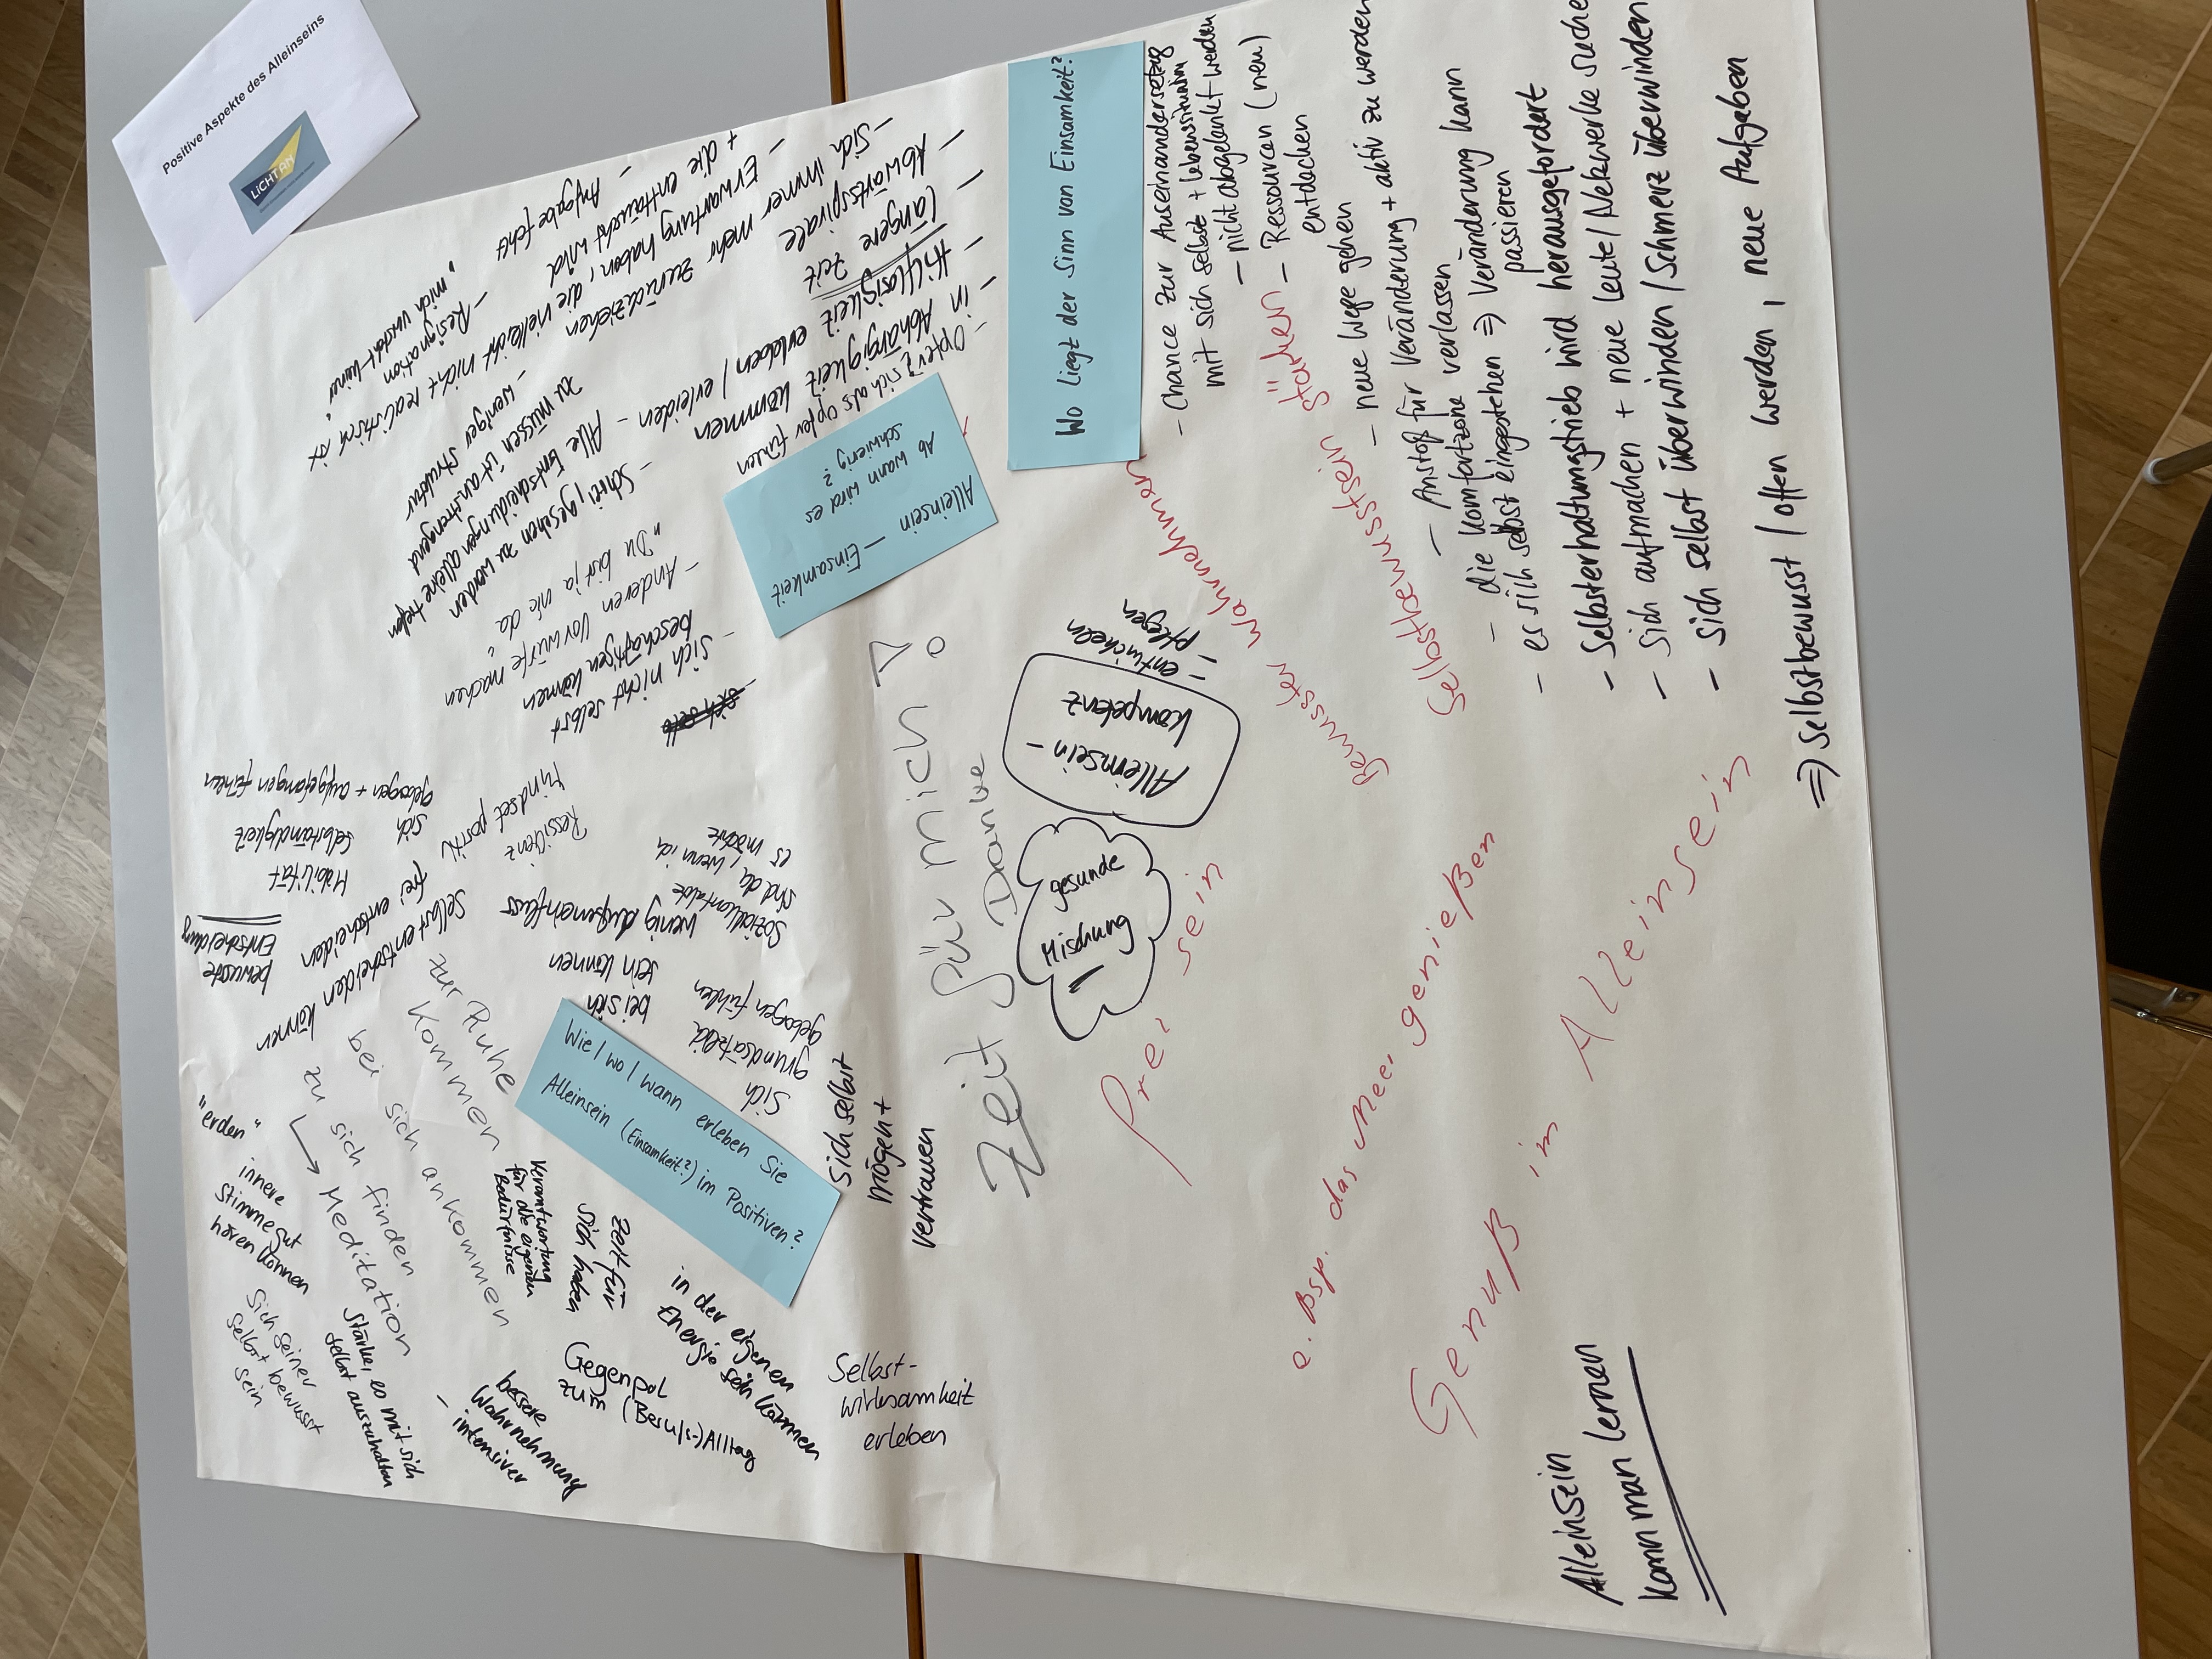 Positive Aspekte des Alleinseins
LICHT AN
Wo liegt der Sinn von Einsamkeit?
- Chance zur Auseinandersetzug
mit sich selbst + Lebenssituation
- nicht abgelenkt werden
- Ressourcen (neu)
entdecken
Stärken
- neue Wege gehen
- Anstoß für Veränderung + aktiv zu werden
- die Komfortzone verlassen
- es sich selbst eingestehen ⇒ Veränderung kann
passieren
- Selbsterhaltungstrieb wird herausgefordert
- sich aufmachen + neue Leute / Netzwerke suche
- sich selbst überwinden / Schmerz überwinden
⇒ Selbstbewusst / offen werden, neue Aufgaben
Bewusster wahrnehmen
Selbstbewusstsein
Alleinsein - Einsamkeit
Ab wann wird es
schwierig?
- Opfer? sich als Opfer fühlen
- in Abhängigkeit kommen
- Hilflosigkeit erleben / erleiden
längere Zeit
- Abwärtsspirale
- Sich immer mehr zurückziehen
- Erwartung haben, die vielleicht nicht realistisch ist
+ die enttäuscht wird
- Aufgabe fehlt
- Resignation
- Alle Entscheidungen alleine treffen
zu müssen ist anstrengend
- weniger Struktur
- Schrei, gesehen zu werden
- Anderen Vorwürfe machen
"Du bist ja nie da"
- Sich nicht selbst
beschäftigen können
Alleinsein-
kompetenz
- entwickeln
pflegen
gesunde
Mischung
Zeit für mich?!
Danke
Frei sein
z. Bsp. das Meer genießen
Genuß im Alleinsein
Alleinsein
kann man lernen
Wie / wo / wann erleben Sie
Alleinsein (Einsamkeit?) im Positiven?
Sich
grundsätzlich
geborgen fühlen
bei sich
sein können
wenig Außeneinfluss
Sozialkontakte
sind da, wenn ich
es möchte
Ressilienz
Mindset positiv
Selbst entscheiden können
frei entscheiden
Mobilität
Selbständigkeit
sich
geborgen + aufgefangen fühlen
bewusste
Entscheidung
zur Ruhe
Kommen
bei sich ankommen
zu sich finden
→ Meditation
"erden"
innere
Stimme gut
hören können
Sich seiner
selbst bewusst
sein
Stärke, es mit sich
selbst auszuhalten
Verantwortung
für die eigenen
Bedürfnisse
Zeit für
sich haben
bessere
Wahrnehmung
- intensiver
Gegenpol
zum (Berufs-)Alltag
in der eigenen
Energie sein können
Selbst-
wirksamkeit
erleben
sich selbst
mögen +
vertrauen